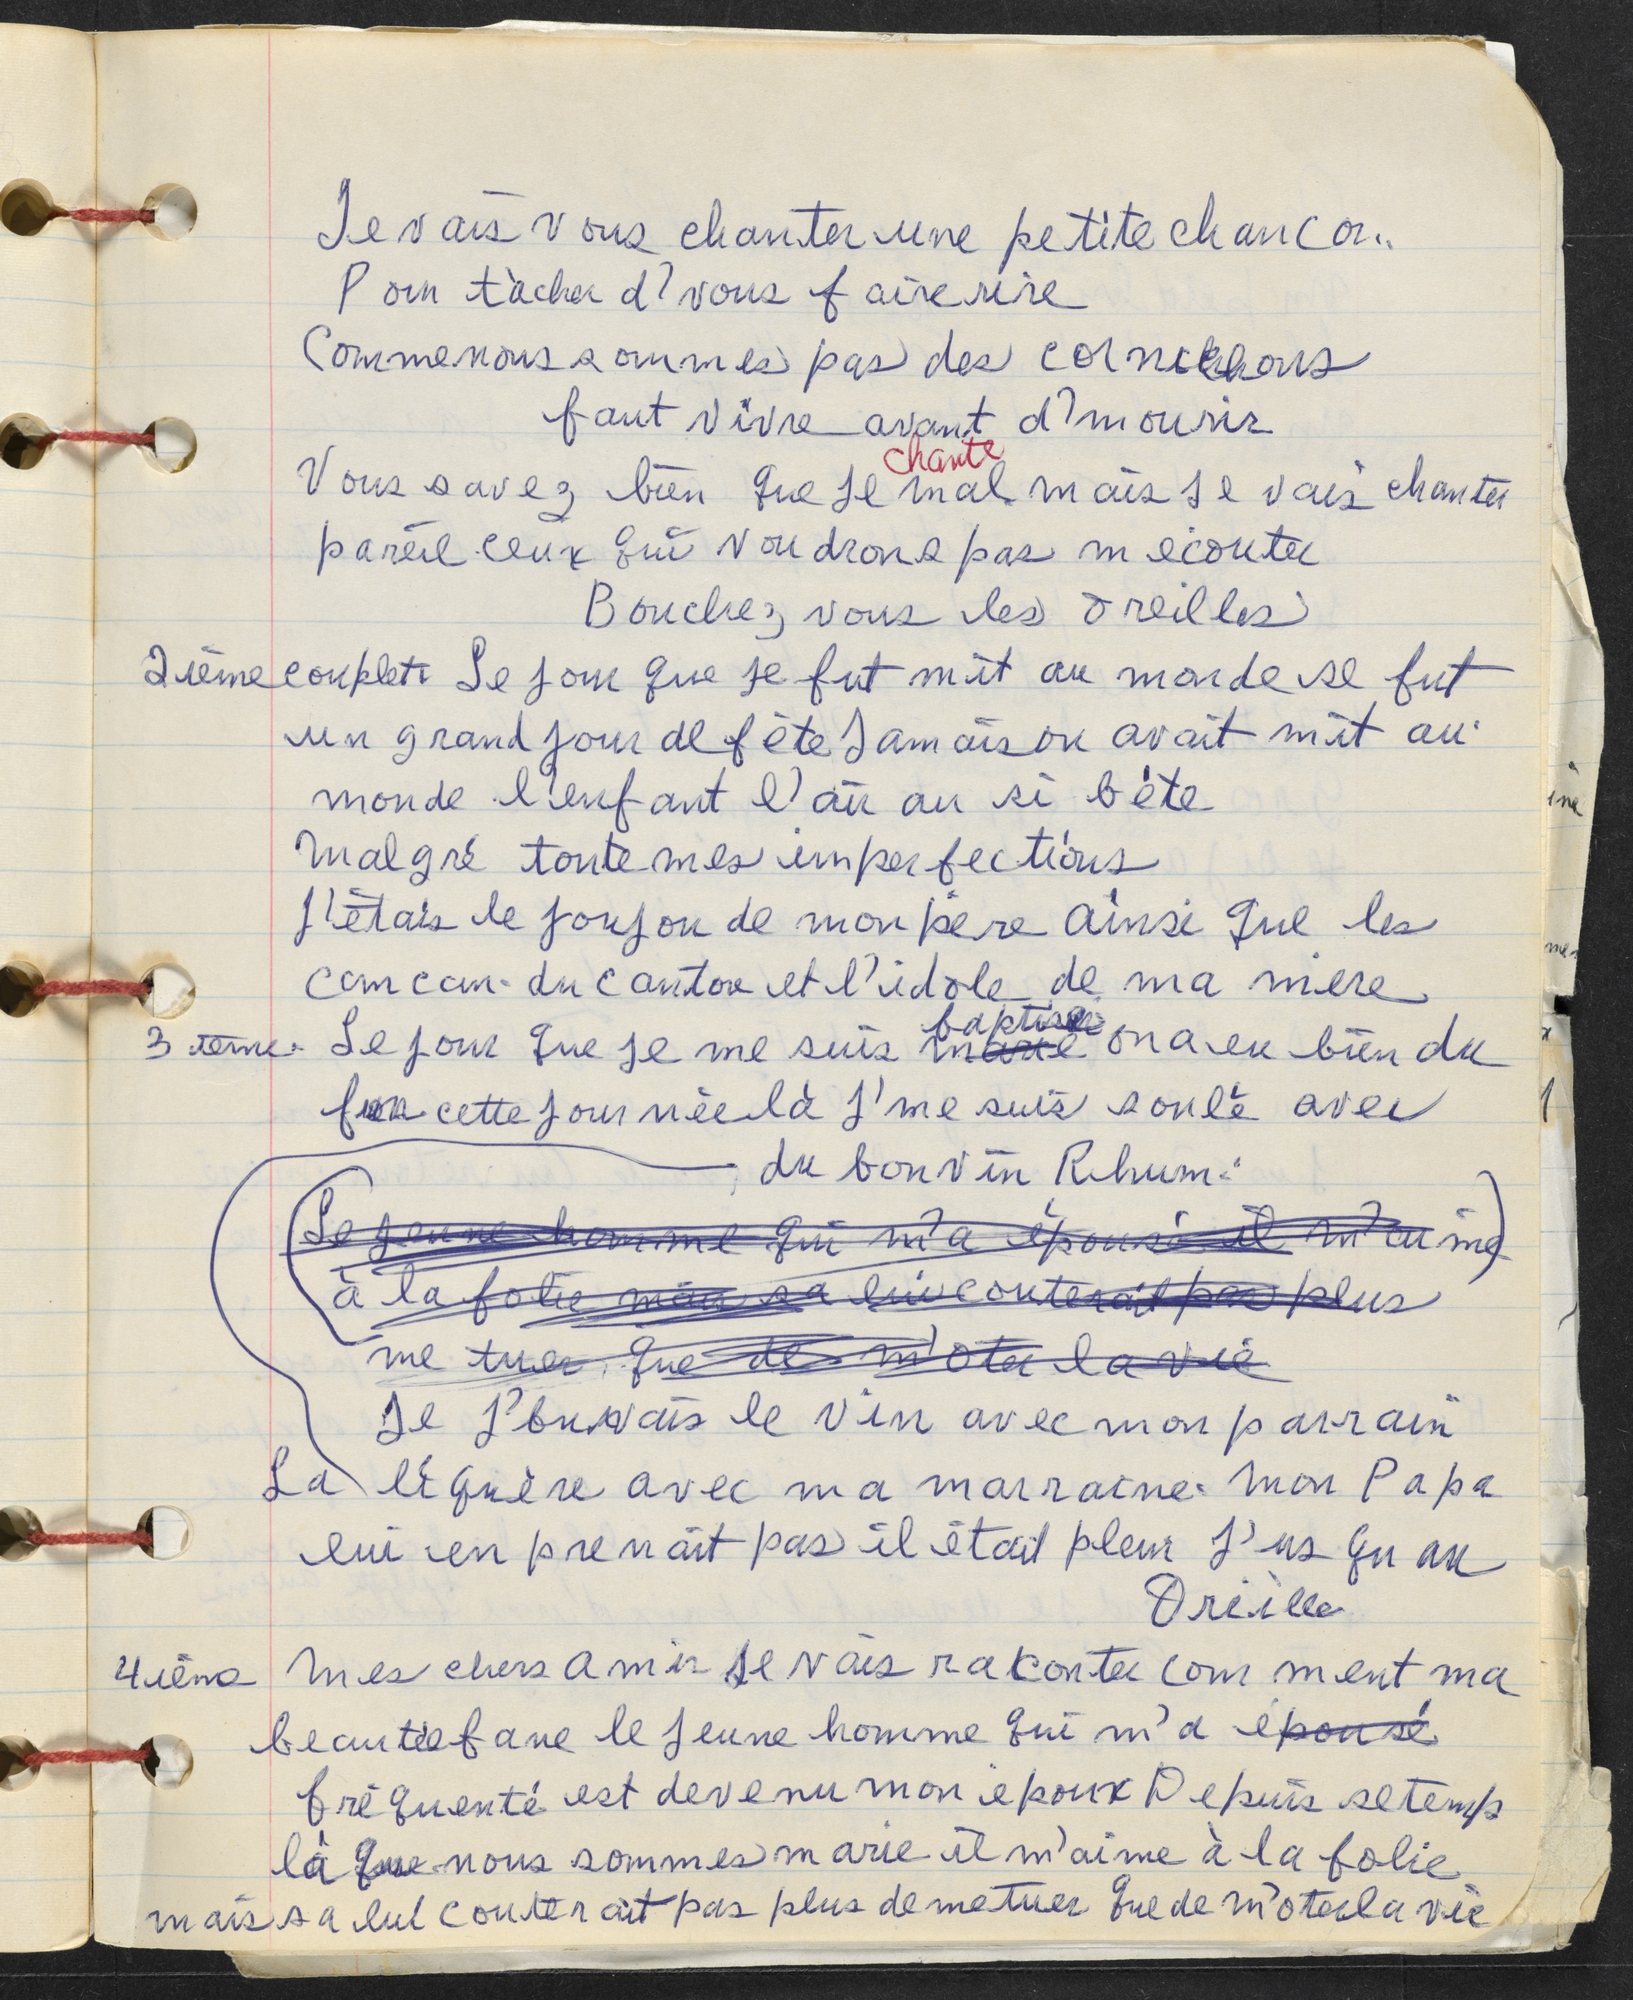 Je vais vous chanter une petite chancon..
Pour tàcher d'vous faire rire
Comme nous sommes pas des cornichons
faut vivre avant d'mourir
chante
Vous savez bien que je mal mais je vais chanter
pareil ceux qui voudrons pas m ecouter
Bouchez vous les oreilles
2ième couplet Le jour que je fut mit au monde se fut
un grand jour de fête Jamais on avait mit au
monde l'enfant l'air au si bête
Malgré toute mes imperfections
J'étais le joujou de mon père Ainsi que les
cancan du canton et l'idole de ma mère
baptisé
3 ième Le jour que je me suis marié on a eu bien du
fun cette journée là j'me suis soulé avec
du bon vin Rhum.
(Le jeune homme qui m'a épousé il m'aime)
à la folie mais sa lui couterait pas plus
me tuer que de m'oter la vie
Je j'buvais le vin avec mon parrain
La liquère avec ma marraine. Mon Papa
lui en prenait pas il était plein j'us qu au
Oriille
4ième Mes chers amis je vais raconter comment ma
beautée fane le jeune homme qui m'a épousé
fréquenté est devenu mon époux Depuis se temps
là que nous sommes marie il m'aime à la folie
mais sa lui couterait pas plus de me tuer que de m'oter la vie